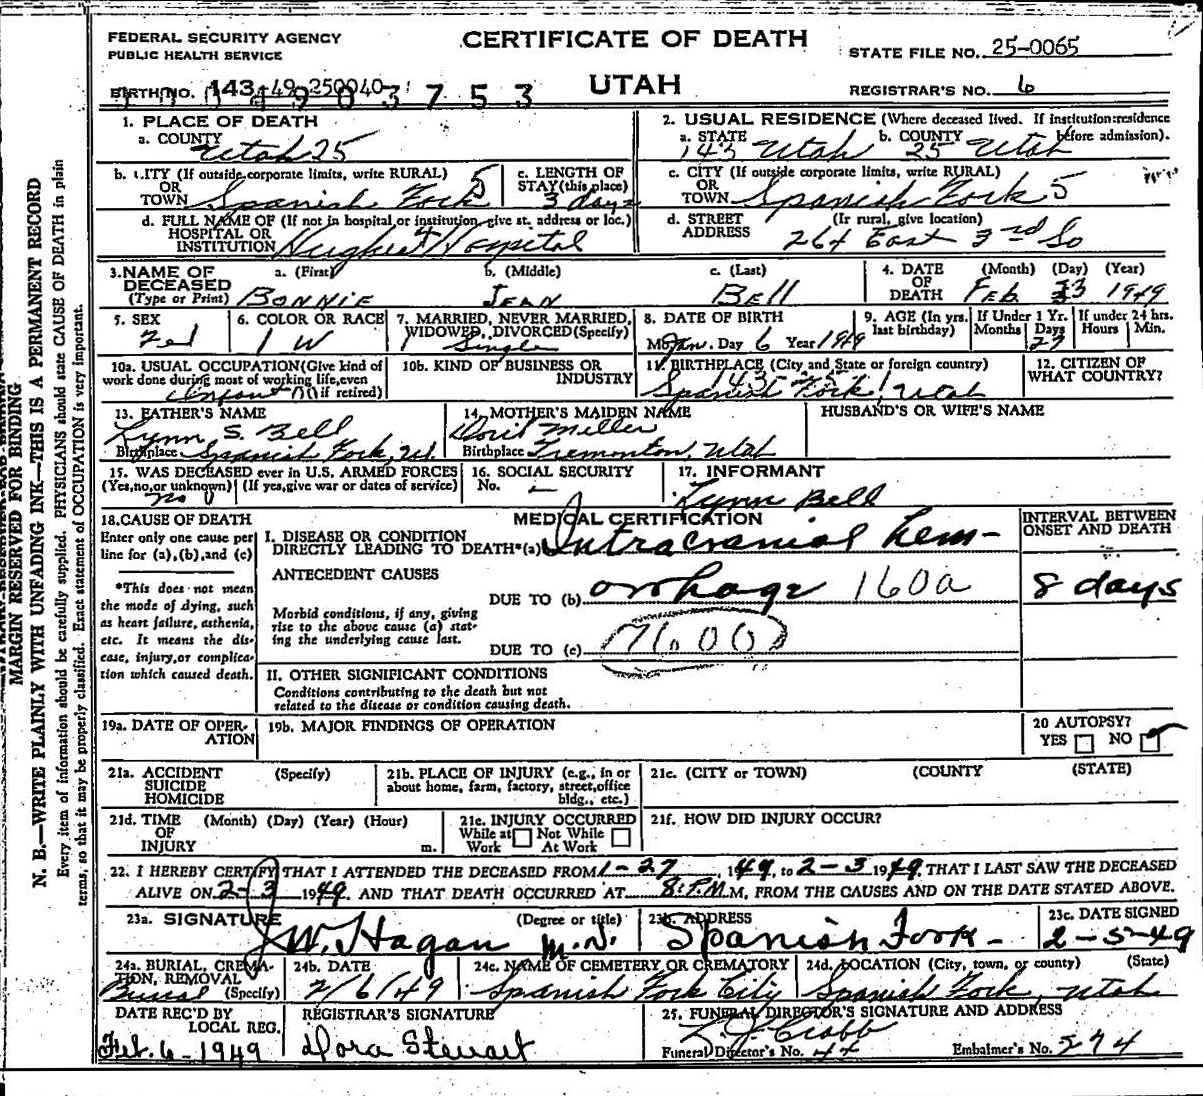 FEDERAL SECURITY AGENCY
PUBLIC HEALTH SERVICE
CERTIFICATE OF DEATH
UTAH
STATE FILE NO. 25-0065
BIRTH NO. 143 49 250040
3753
REGISTRAR'S NO. 6
1. PLACE OF DEATH
a. COUNTY Utah 25
b. CITY (If outside corporate limits, write RURAL) OR TOWN Spanish Fork 5
c. LENGTH OF STAY (this place) 3 days
d. FULL NAME OF (If not in hospital or institution, give st. address or loc.) HOSPITAL OR INSTITUTION Hughes Hospital
2. USUAL RESIDENCE (Where deceased lived. If institution: residence before admission).
a. STATE 143 Utah b. COUNTY 25 Utah
c. CITY (If outside corporate limits, write RURAL) OR TOWN Spanish Fork 5
d. STREET ADDRESS (If rural, give location) 264 East 3rd So
3. NAME OF DECEASED (Type or Print)
a. (First) BONNIE b. (Middle) JEAN c. (Last) BEll
4. DATE OF DEATH (Month) (Day) (Year) Feb. 3 1949
5. SEX Fel
6. COLOR OR RACE 1 W
7. MARRIED, NEVER MARRIED, WIDOWED, DIVORCED (Specify) 1 Single
8. DATE OF BIRTH Mo. Jan. Day 6 Year 1949
9. AGE (In yrs. last birthday) If Under 1 Yr. Months Days 27 If under 24 hrs. Hours Min.
10a. USUAL OCCUPATION (Give kind of work done during most of working life, even if retired) Infant
10b. KIND OF BUSINESS OR INDUSTRY
11. BIRTHPLACE (City and State or foreign country) Spanish Fork, Utah
12. CITIZEN OF WHAT COUNTRY?
13. FATHER'S NAME Lynn S. Bell
Birthplace Spanish Fork, Ut.
14. MOTHER'S MAIDEN NAME Doris Miller
Birthplace Tremonton, Utah
HUSBAND'S OR WIFE'S NAME
15. WAS DECEASED ever in U.S. ARMED FORCES
(Yes, no, or unknown) (If yes, give war or dates of service) no 0
16. SOCIAL SECURITY No. –
17. INFORMANT Lynn Bell
18. CAUSE OF DEATH
Enter only one cause per line for (a), (b), and (c)
*This does not mean the mode of dying, such as heart failure, asthenia, etc. It means the disease, injury, or complication which caused death.
MEDICAL CERTIFICATION
I. DISEASE OR CONDITION DIRECTLY LEADING TO DEATH* (a) Intracranial hem-
ANTECEDENT CAUSES
DUE TO (b) orrhage 160a
Morbid conditions, if any, giving rise to the above cause (a) stating the underlying cause last.
DUE TO (c) 7600
INTERVAL BETWEEN ONSET AND DEATH
8 days
II. OTHER SIGNIFICANT CONDITIONS
Conditions contributing to the death but not related to the disease or condition causing death.
19a. DATE OF OPERATION
19b. MAJOR FINDINGS OF OPERATION
20 AUTOPSY? YES NO
21a. ACCIDENT SUICIDE HOMICIDE (Specify)
21b. PLACE OF INJURY (e.g., in or about home, farm, factory, street, office bldg., etc.)
21c. (CITY or TOWN) (COUNTY) (STATE)
21d. TIME OF INJURY (Month) (Day) (Year) (Hour) m.
21e. INJURY OCCURRED While at Work Not While At Work
21f. HOW DID INJURY OCCUR?
22. I HEREBY CERTIFY THAT I ATTENDED THE DECEASED FROM 1-27, 1949, to 2-3 1949, THAT I LAST SAW THE DECEASED
ALIVE ON 2-3 1949 AND THAT DEATH OCCURRED AT 8:P.M M, FROM THE CAUSES AND ON THE DATE STATED ABOVE.
23a. SIGNATURE (Degree or title) J W. Hagan M.D.
23b. ADDRESS Spanish Fork
23c. DATE SIGNED 2-5-49
24a. BURIAL, CREMATION, REMOVAL (Specify) Burial
24b. DATE 2/6/49
24c. NAME OF CEMETERY OR CREMATORY Spanish Fork City
24d. LOCATION (City, town, or county) (State) Spanish Fork, Utah
DATE REC'D BY LOCAL REG. Feb. 6-1949
REGISTRAR'S SIGNATURE Dora Stewart
25. FUNERAL DIRECTOR'S SIGNATURE AND ADDRESS
Funeral Director's No. 44 Embalmer's No. 574
MARGIN RESERVED FOR BINDING
N. B.—WRITE PLAINLY WITH UNFADING INK—THIS IS A PERMANENT RECORD
Every item of information should be carefully supplied. PHYSICIANS should state CAUSE OF DEATH in plain
terms, so that it may be properly classified. Exact statement of OCCUPATION is very important.